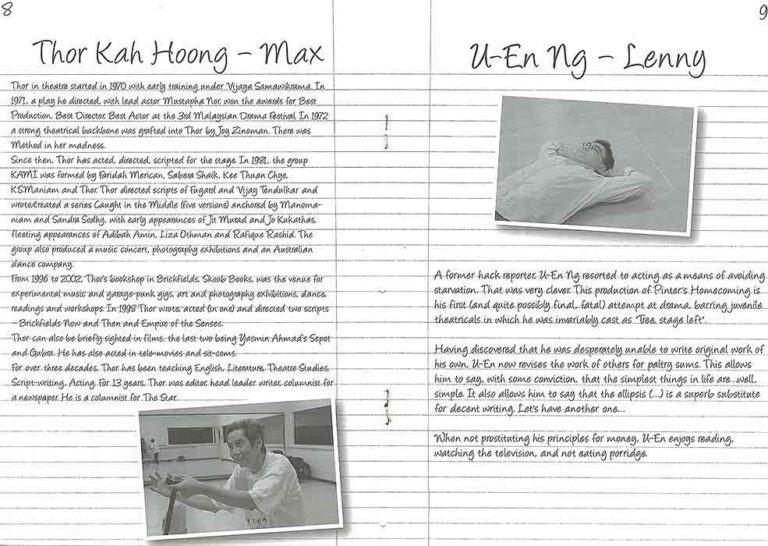 8
Thor Kah Hoong – Max
Thor in theatre started in 1970 with early training under Vijaya Samawikrama. In
1971, a play he directed, with lead actor Mustapha Nor, won the awards for Best
Production, Best Director, Best Actor at the 3rd Malaysian Drama Festival. In 1972
a strong theatrical backbone was grafted into Thor by Joy Zinoman. There was
Method in her madness.
Since then, Thor has acted, directed, scripted for the stage. In 1981, the group
KAMI was formed by Faridah Merican, Sabera Shaik, Kee Thuan Chye,
K.S.Maniam and Thor. Thor directed scripts of Fugard and Vijay Tendulkar and
wrote/created a series Caught in the Middle (five versions) anchored by Manoma-
niam and Sandra Sodhy, with early appearances of Jit Murad and Jo Kukathas,
fleeting appearances of Adibah Amin, Liza Othman and Rafique Rashid. The
group also produced a music concert, photography exhibitions and an Australian
dance company.
From 1996 to 2002, Thor's bookshop in Brickfields, Skoob Books, was the venue for
experimental music and garage-punk gigs, art and photography exhibitions, dance,
readings and workshops. In 1998 Thor wrote, acted (in one) and directed two scripts
– Brickfields Now and Then and Empire of the Senses.
Thor can also be briefly sighted in films, the last two being Yasmin Ahmad's Sepet
and Gubra. He has also acted in tele-movies and sit-coms.
For over three decades, Thor has been teaching English, Literature, Theatre Studies,
Script-writing, Acting. For 13 years, Thor was editor, head leader writer, columnist for
a newspaper. He is a columnist for The Star.
9
U-En Ng – Lenny
A former hack reporter, U-En Ng resorted to acting as a means of avoiding
starvation. That was very clever. This production of Pinter's Homecoming is
his first (and quite possibly final, fatal) attempt at drama, barring juvenile
theatricals in which he was invariably cast as "Tree, stage left".
Having discovered that he was desperately unable to write original work of
his own, U-En now revises the work of others for paltry sums. This allows
him to say, with some conviction, that the simplest things in life are...well,
simple. It also allows him to say that the ellipsis (...) is a superb substitute
for decent writing. Let's have another one...
When not prostituting his principles for money, U-En enjoys reading,
watching the television, and not eating porridge.